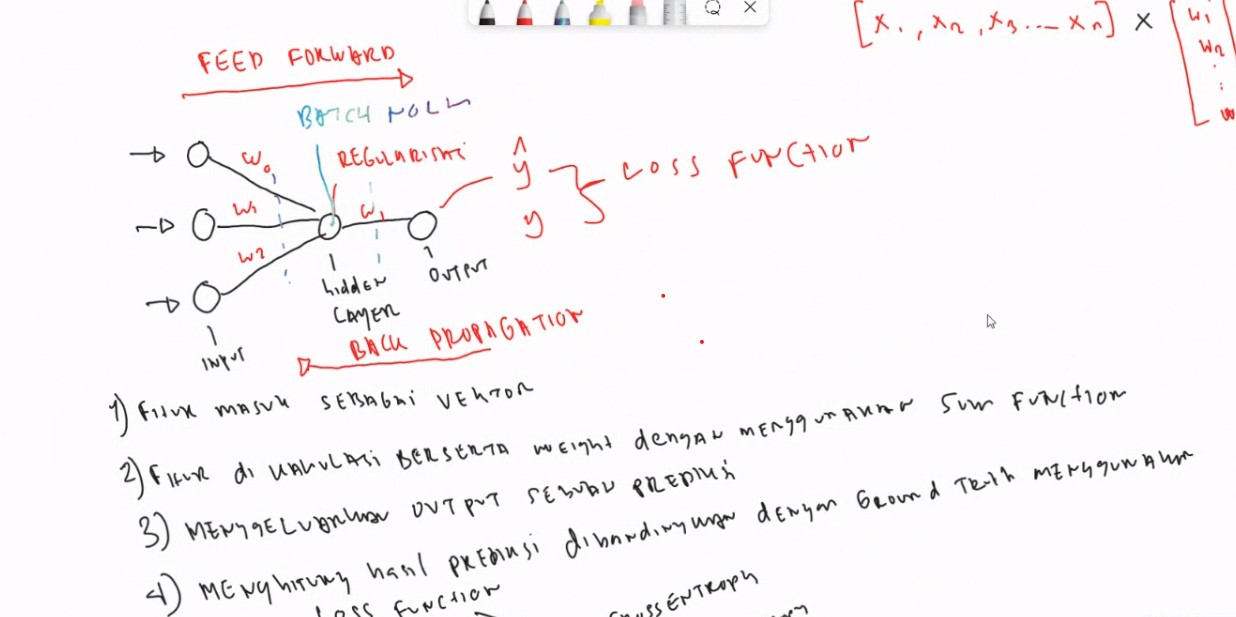 [x1, x2, x3... xn] x [w1
w2
:
FEED FORWARD
BATCH NORM
w0
REGULARISASI
ŷ
y
LOSS FUNCTION
w1
w1
w2
hidden
LAYER
OUTPUT
INPUT
BACK PROPAGATION
1) FITUR MASUK SEBAGAI VEKTOR
2) FITUR di KALKULASI BERSERTA WEIGHT dENGAN MENGGUNAKAN SUM FUNCTION
3) MENGELUARKAN OUTPUT SEBUAH PREDIKSI
4) MENGHITUNG hasil PREDIKSI dibandingkan dengan Ground Truth MENGGUNAKAN
LOSS FUNCTION
CROSSENTROPY